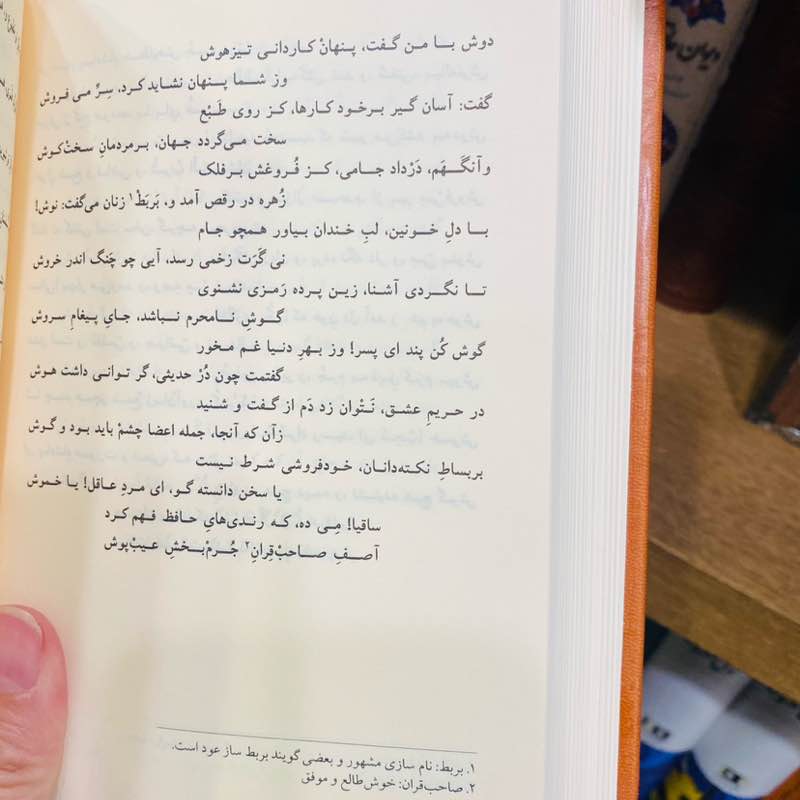 دوش بـا من گفت، پـنهانْ کـاردانی تـیزهوش
وز شـما پـنهان نشاید کرد، سِرِّ مـی فروش
گفت: آسان گیر برخود کارها، کـز روی طَبْع
سخت می‌گردد جهان، بـرمردمانِ سختْ‌کوش
وآنگـهَم، دَرْداد جامی، کـز فُـروغش بـرفلک
زُهره در رقص آمد و، بَربَطْ۱ زنان می‌گفت: نوش!
بـا دلِ خـونین، لبِ خندان بیاور همچو جام
نی گَرَت زخمی رسد، آیی چو چَنگ اندر خروش
تـا نگـردی آشنا، زیـن پـرده رَمـزی نشنوی
گـوشِ نـامحرم نـباشد، جـایِ پـیغامِ سروش
گوش کُن پند ای پسر! وز بـهرِ دنیا غـم مـخور
گفتمت چون دُرْ حدیثی، گر تـوانی داشت هوش
در حـریمِ عشـق، نَـتْوان زد دَم از گفت و شنید
زآن که آنجا، جمله اعضا چشمْ باید بود و گوش
بـربساطِ نکته‌دانـان، خـودفروشی شـرط نـیست
یا سخن دانسته گـو، ای مـردِ عـاقل! یـا خـموش
ساقیا! مِـی ده، کـه رنـدی‌هایِ حـافظ فـهم کـرد
آصـفِ صـاحبْ‌قِرانِ۲ جُـرمْ‌بـخشِ عـیبْ‌پوش
۱. بربط: نام سازی مشهور و بعضی گویند بربط ساز عود است.
۲. صاحب‌قران: خوش‌طالع و موفق
دیوان حافظ